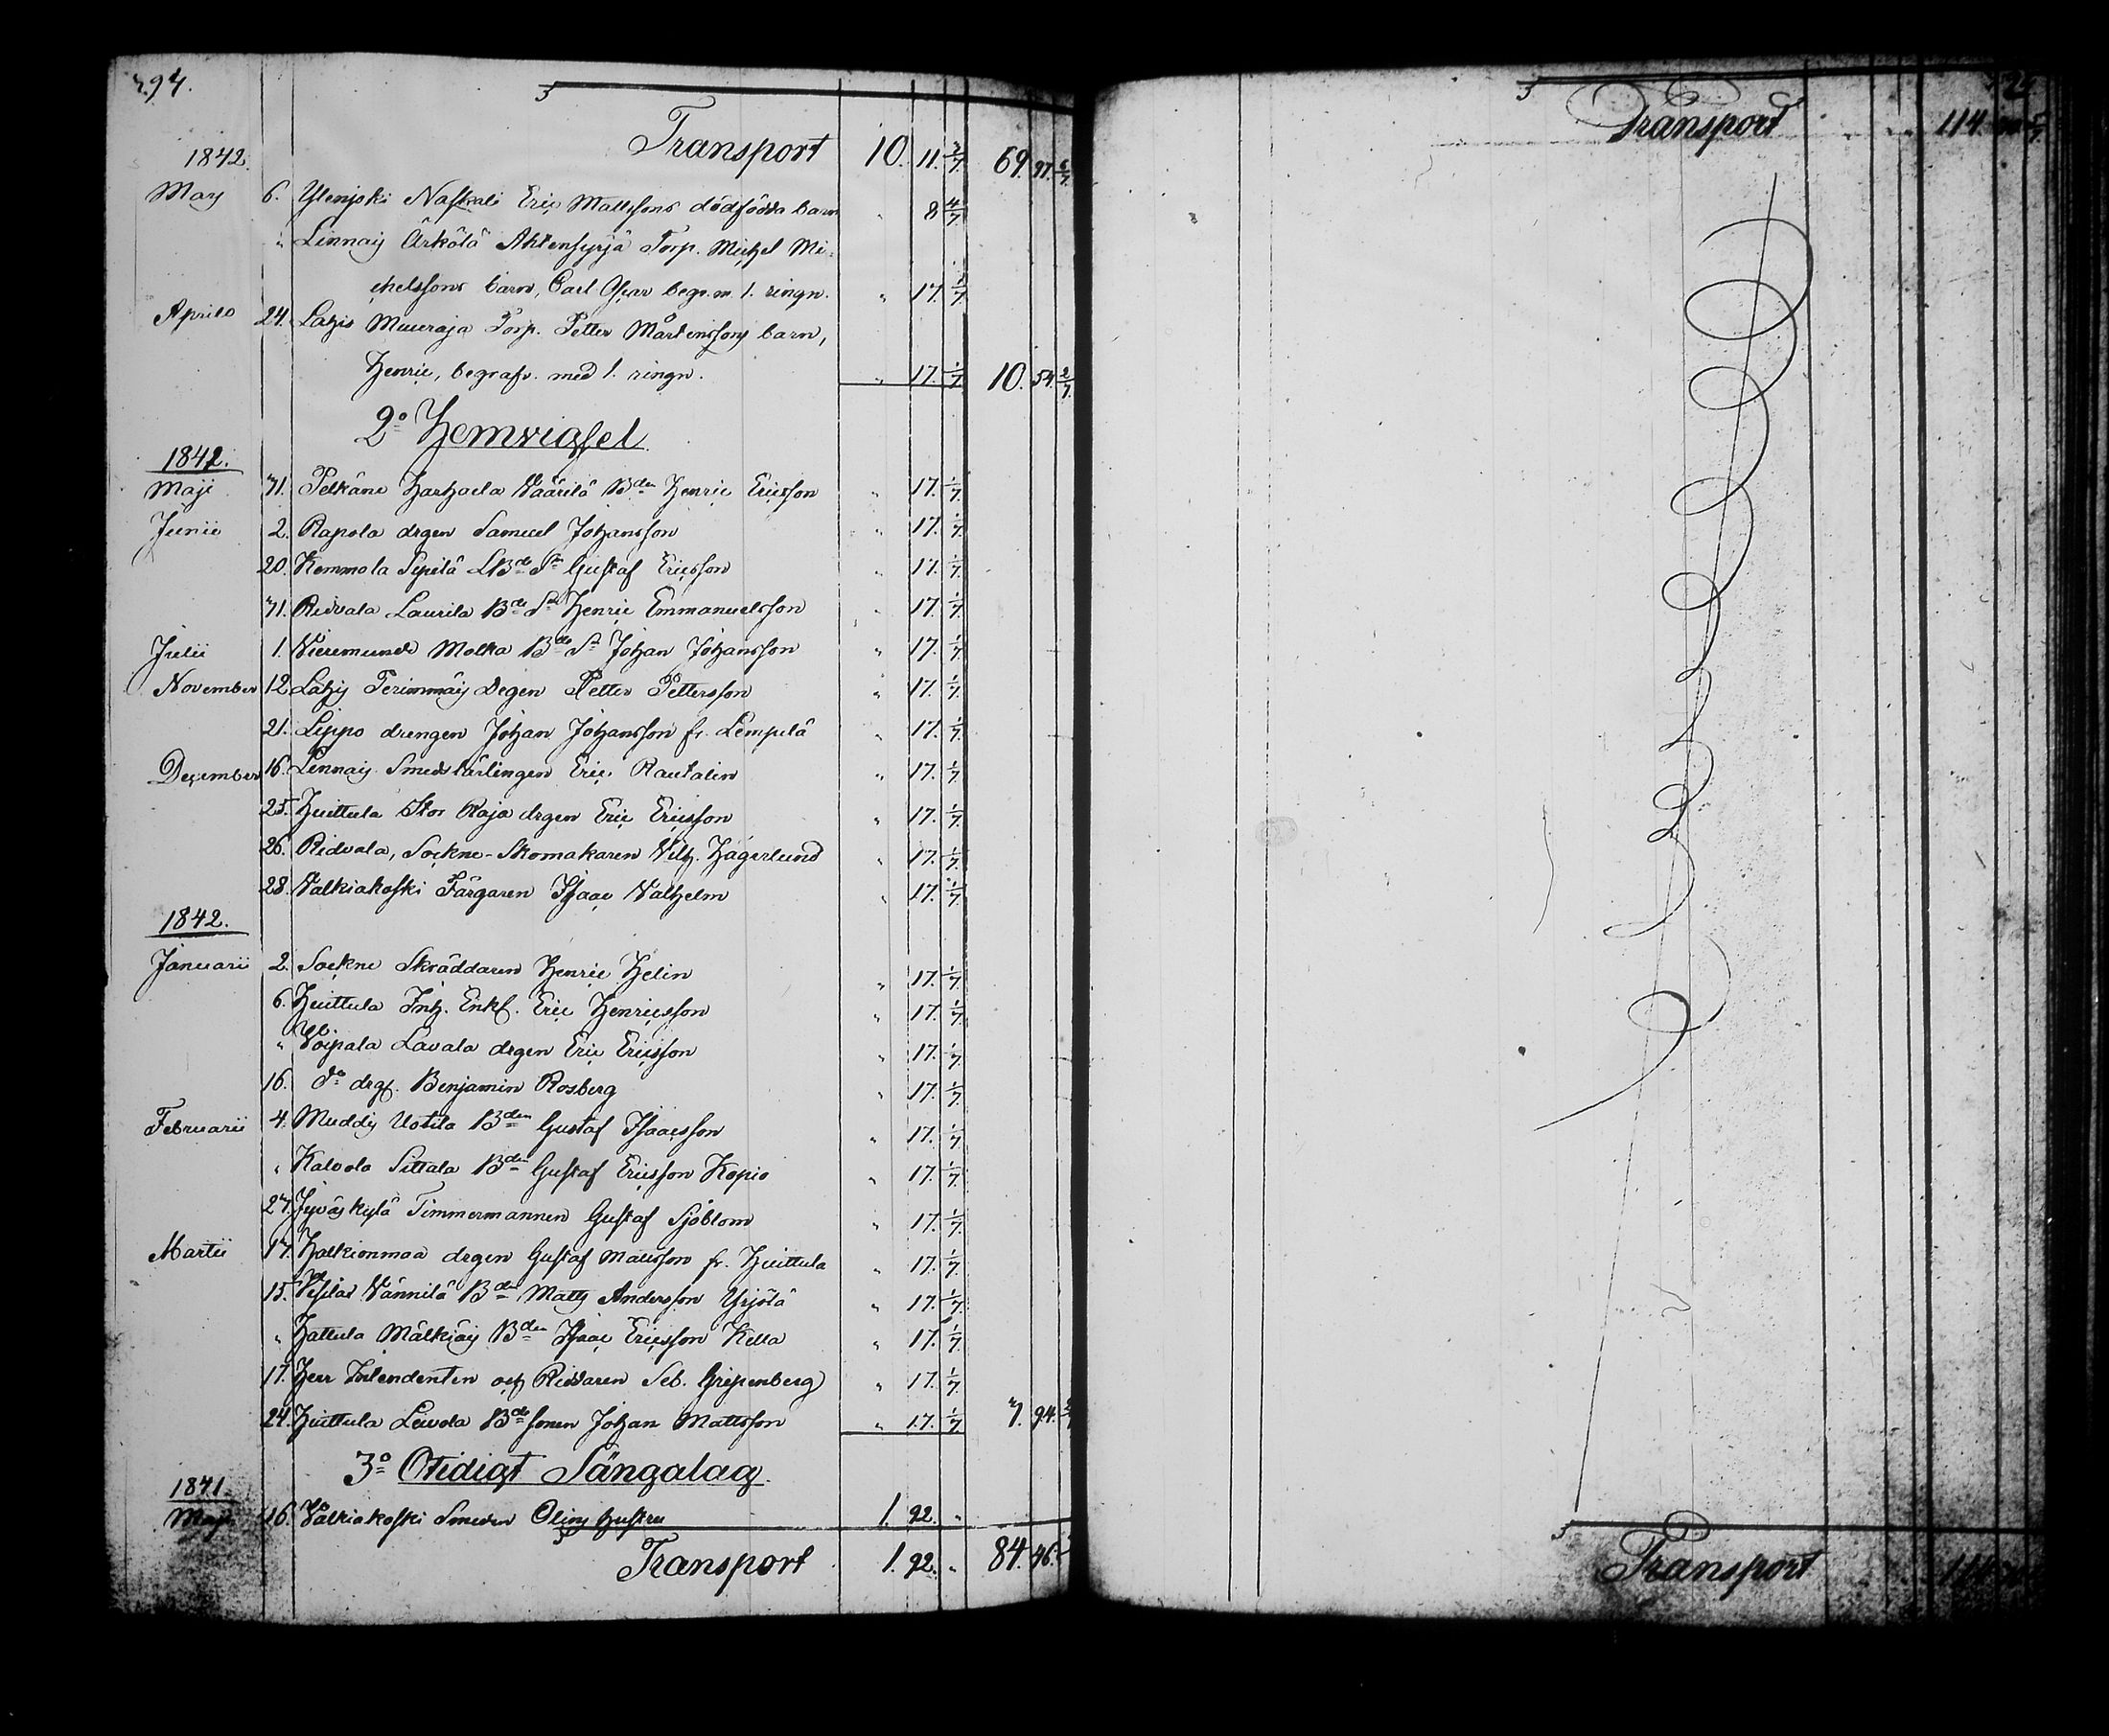 294.
Transport 10. 11. 3/7. 69. 97. 6/7.
1842.
May 6. Ylenjoki Naskali Eric Mattssons dödfödda barn " 8 4/7.
" Linnais Ärkölä Ahtensyrjä Torp. Michel Mi-
chelssons barn, Carl Oscar begr. m. 1. ringn. " 17. 1/7.
Aprill 24. Lahis Muuraja Torp. Petter Mårtenssons barn,
Henric, begrafv. med 1. ringn. " 17. 1/7. 10. 54. 2/7.
2o Hemvigsel
1842.
Maji 71. Pelkäne Harhala Väärilä Bden Henric Ericsson " 17. 1/7.
Junii 2. Rapola drgen Samuel Johansson " 17. 1/7.
20. Kemmola Sipilä LBde Sn Gustaf Ericsson " 17. 1/7.
71. Ridvala Laurila Bde Sn Henric Emmanuelsson " 17. 1/7.
Julii 1. Vieremunde Molka Bde Sn Johan Johansson " 17. 1/7.
November 12. Lahis Perimmäis Drgen Petter Pettersson " 17. 1/7.
21. Leppo drengen Johan Johansson fr. Lempelä " 17. 1/7.
December 16. Linnais Smedslärlingen Eric Rautalin " 17. 1/7.
25. Huittula Stor Raja drgen Eric Ericsson " 17. 1/7.
26. Ridvala, Sockne-Skomakaren Vilh. Hägerlund " 17. 1/7.
28. Valkiakoski Färgaren Isaac Valhelm " 17. 1/7.
1842.
Januarii 2. Sockne Skräddaren Henric Helin " 17. 1/7.
6. Huittula Inh. Enkl. Eric Henricsson " 17. 1/7.
" Voipala Lavala drgen Eric Ericsson " 17. 1/7.
16. do drg. Benjamin Rosberg " 17. 1/7.
Februarii 4. Muddis Uotila Bden Gustaf Isaacsson " 17. 1/7.
" Kalvola Sittala Bden Gustaf Ericsson Kopio " 17. 1/7.
27. Jyväskylä Timmermannen Gustaf Sjöblom " 17. 1/7.
Martii 17. Halkionmaa drgen Gustaf Matsson fr. Huittula " 17. 1/7.
15. Vesilax Männilä Bden Matts Andersson Yrjölä " 17. 1/7.
" Hattula Mälkiäis Bden Isaac Ericsson Kella " 17. 1/7.
17. Herr Intendenten och Riddaren Seb. Gripenberg " 17. 1/7.
24. Huittula Leivola Bde sonen Johan Mattsson " 17. 1/7. 7. 94. 2/7
3o Otidigt Sängalag.
1841.
Maji 16. Valkiakoski Smeden Olins hustru 1. 92. "
Transport 1. 92. " 84. 46.
Transport 114.
Transport 114